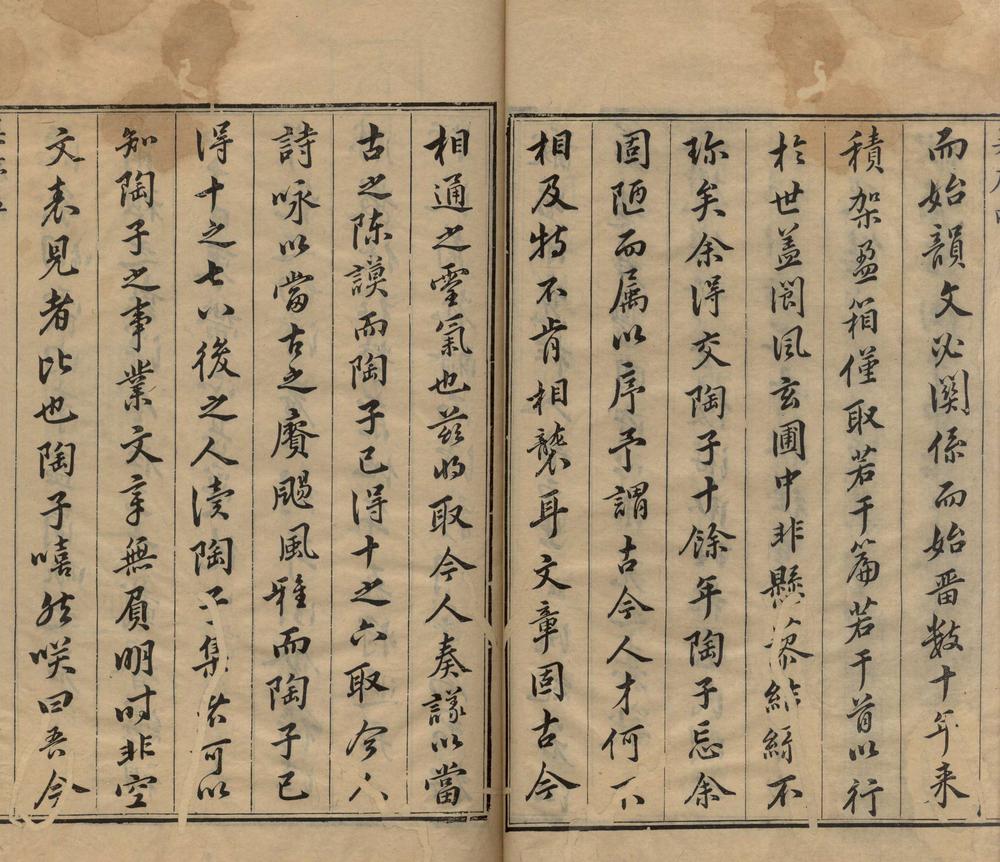 而始韻文必関係而始畱數十年来
積架盈箱僅取若干篇若干首以行
於世盖閬風玄圃中非懸藜結綠不
珎矣余得交陶子十餘年陶子忘余
固陋而属以序予謂古今人才何不
相及特不肯相襲耳文章固古今
相通之霊氣也兹将取今人奏議以當
古之陳謨而陶子已得十之六取今人
詩咏以當古之賡颺風雅而陶子已
得十之七八後之人读陶子集者可以
知陶子之事業文章無負明时非空
文表見者比也陶子嘻然咲曰吾今